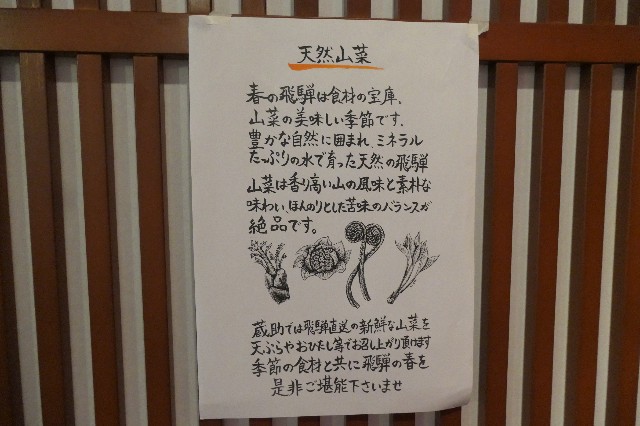 天然山菜
春の飛騨は食材の宝庫、
山菜の美味しい季節です。
豊かな自然に囲まれ、ミネラル
たっぷりの水で育った天然の飛騨
山菜は香り高い山の風味と素朴な
味わい、ほんのりとした苦味のバランスが
絶品です。
蔵助では飛騨直送の新鮮な山菜を
天ぷらやおひたし等でお召し上がり頂けます
季節の食材と共に飛騨の春を
是非ご堪能下さいませ